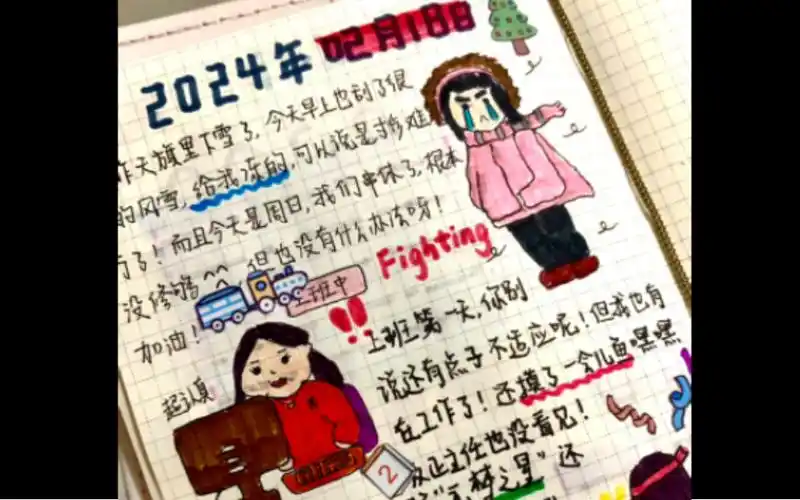 2024年 02月18日
昨天旗里下雪了，今天早上也刮了很
的风雪，给我冻的，可以说是寸步难
行了！而且今天是周日，我们串休了，根本
没修够^^，但也没有什么办法呀！
加油！
Fighting
上班中
上班第一天，你别
说还有点子不适应呢！但我也有
在工作了！还摸了一会儿鱼嘿嘿
反正主任也没看见！
超认真
2
之星” 还